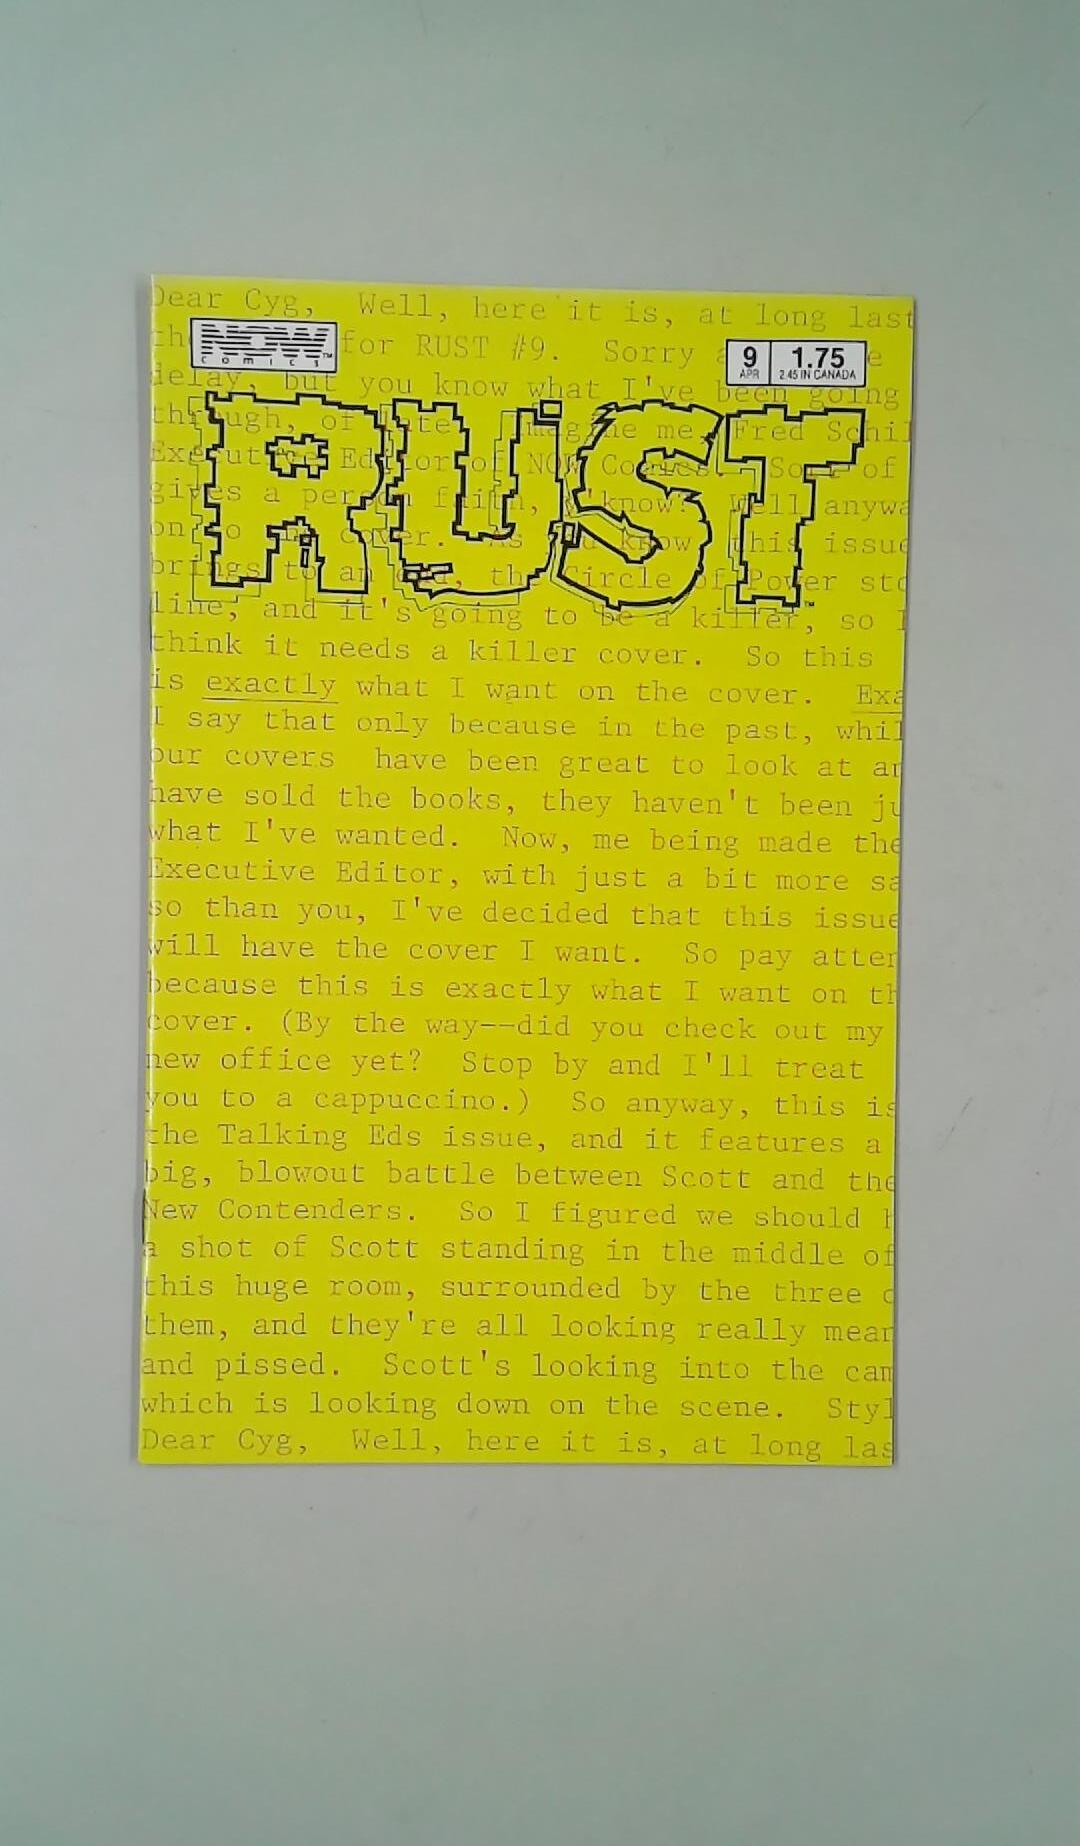 Dear Cyg, Well, here it is, at long last
th for RUST #9. Sorry e
NOW
COMICS™
9
APR
1.75
2.45 IN CANADA
delay, but you know what I've been going
through, of late. Imagine me, Fred Schil
RUST™
Executive Editor of NOW Comics. Sort of
gives a person faith, y'know? Well anywa
on to the cover. As you know, this issue
brings to an end, the Circle of Power sto
line, and it's going to be a killer, so I
think it needs a killer cover. So this
is exactly what I want on the cover. Exa
I say that only because in the past, whil
our covers have been great to look at an
have sold the books, they haven't been ju
what I've wanted. Now, me being made the
Executive Editor, with just a bit more sa
so than you, I've decided that this issue
will have the cover I want. So pay atten
because this is exactly what I want on th
cover. (By the way--did you check out my
new office yet? Stop by and I'll treat
you to a cappuccino.) So anyway, this is
the Talking Eds issue, and it features a
big, blowout battle between Scott and the
New Contenders. So I figured we should h
a shot of Scott standing in the middle of
this huge room, surrounded by the three o
them, and they're all looking really mean
and pissed. Scott's looking into the cam
which is looking down on the scene. Styl
Dear Cyg, Well, here it is, at long las